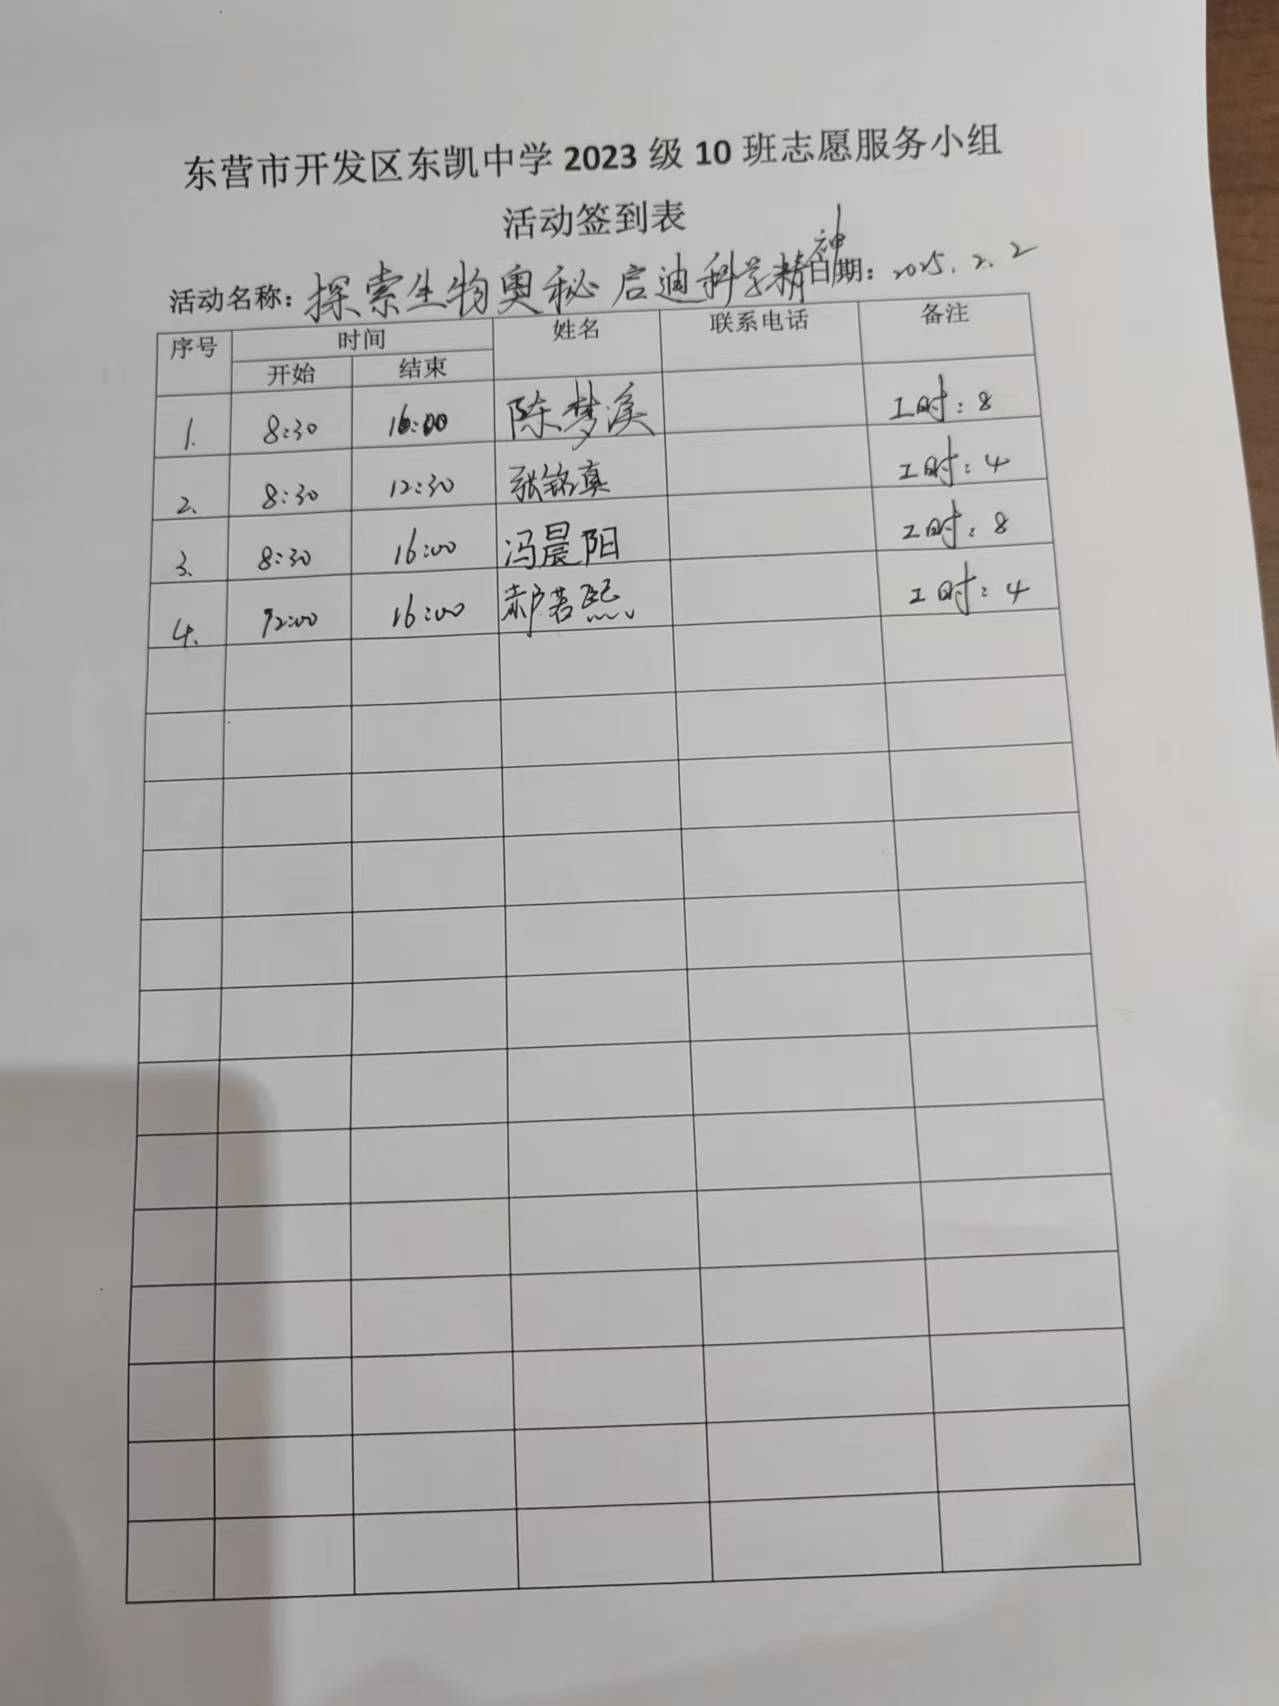 东营市开发区东凯中学2023级10班志愿服务小组
活动签到表
活动名称：探索生物奥秘 启迪科学精神 日期：2025.2.2
序号 时间 姓名 联系电话 备注
开始 结束
1. 8:30 16:00 陈梦溪 工时：8
2. 8:30 12:30 张铭真 工时：4
3. 8:30 16:00 冯晨阳 工时：8
4. 12:00 16:00 郝若熙 工时：4